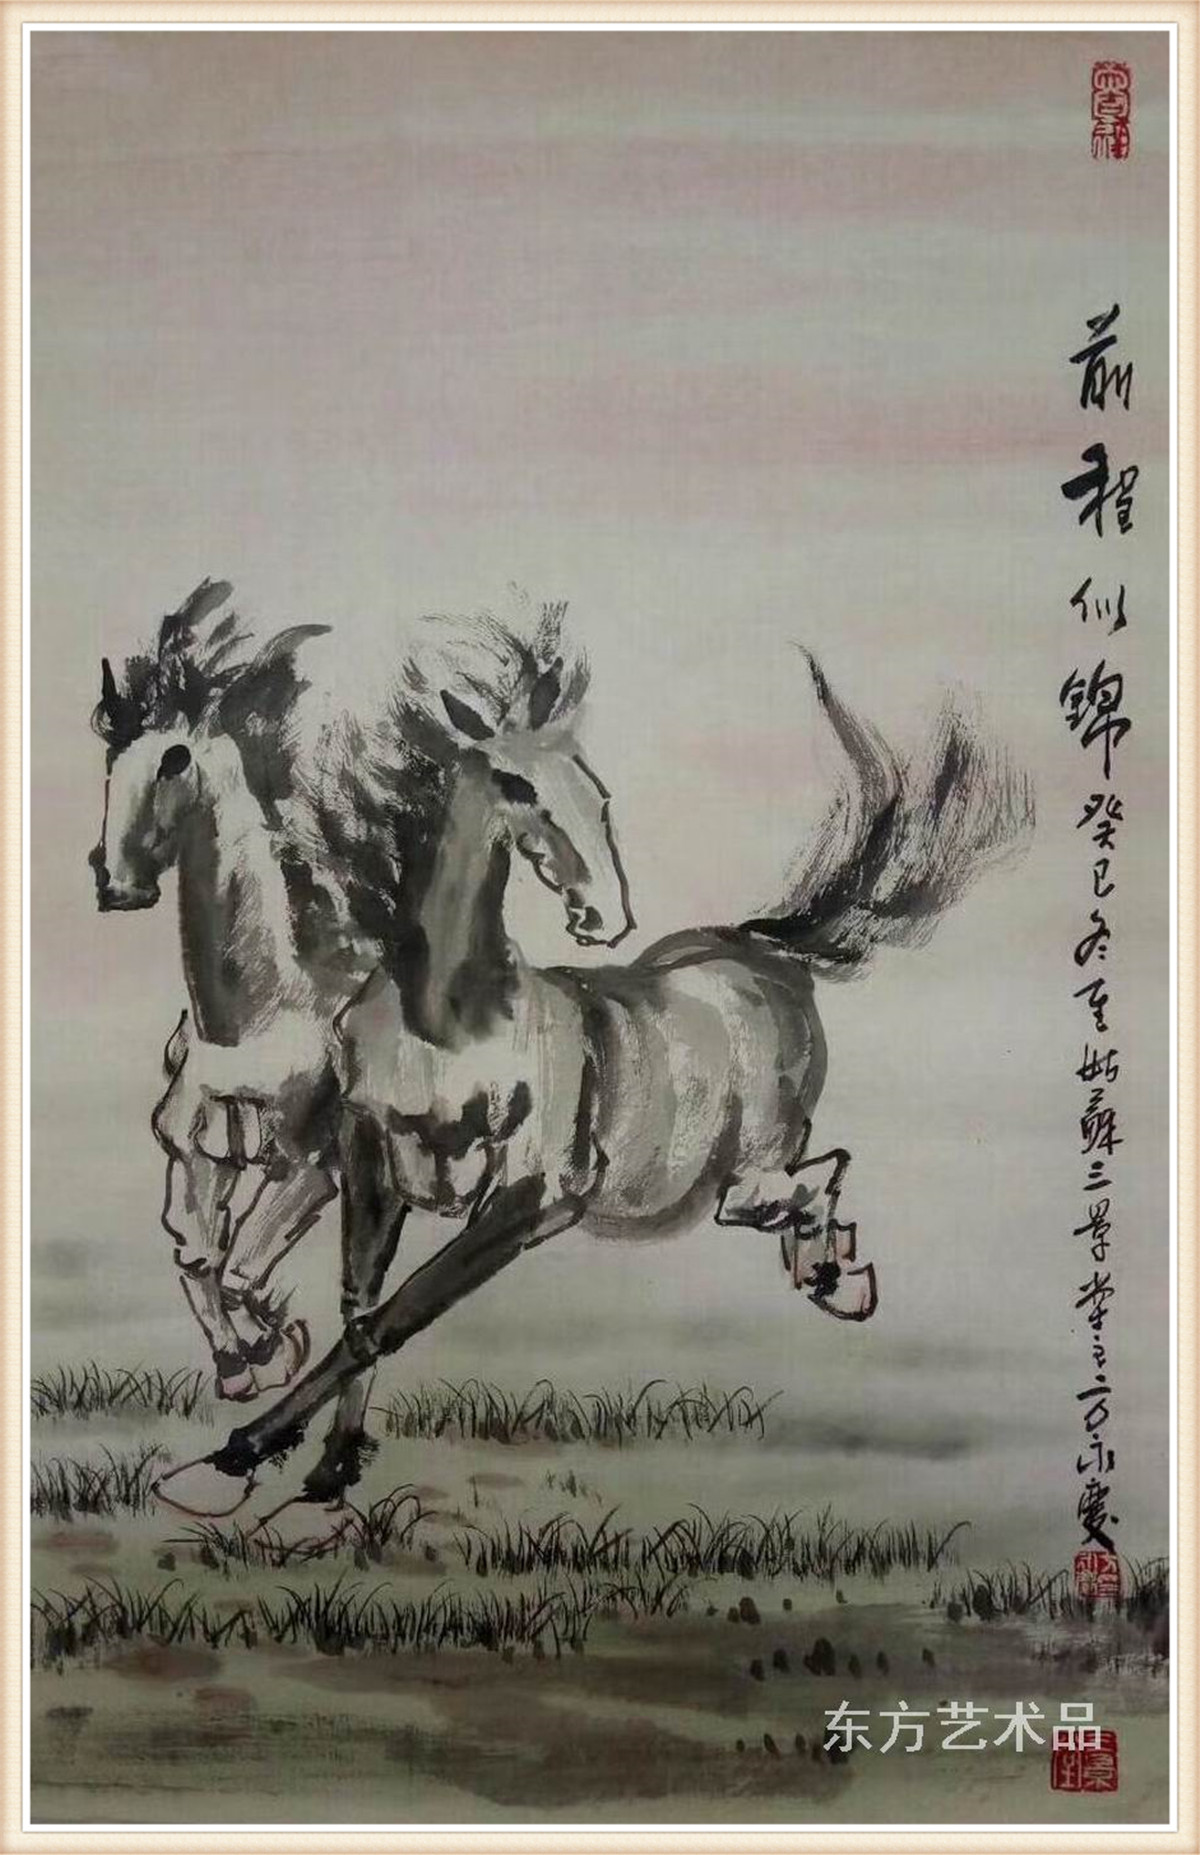 前程似锦
癸巳冬至姑蘇三景堂主方永慶
东方艺术品